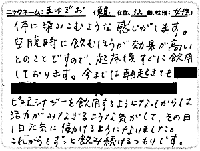 ニックネーム:まゆどお
体に染みこむような感じがします。
空腹時に飲むほうが効果が高い
とのことですので、起床後すぐに飲用
しております。今までは朝起きても
を飲用するようになってからは
活力がみなぎるような気がして、その日
1日元気に働けるようになりました。
これからもずっと飲み続けるつもりです。